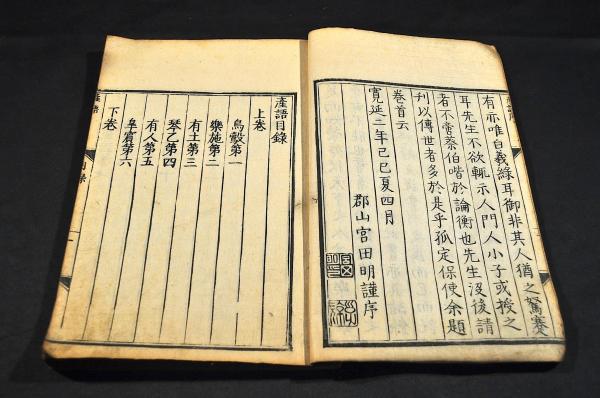 有亦唯白義綠耳御非其人猶之駑蹇
耳先生不欲輒示人門人小子或授之
者不啻伯喈於論衡也先生沒後請
刊以傳世者多於是乎孤定保使余題
卷首云
寬延二年己巳夏四月
郡山宮田明謹序
產語目錄
上卷
第一
樂施第二
有土第三
第四
有人第五
第六
下卷